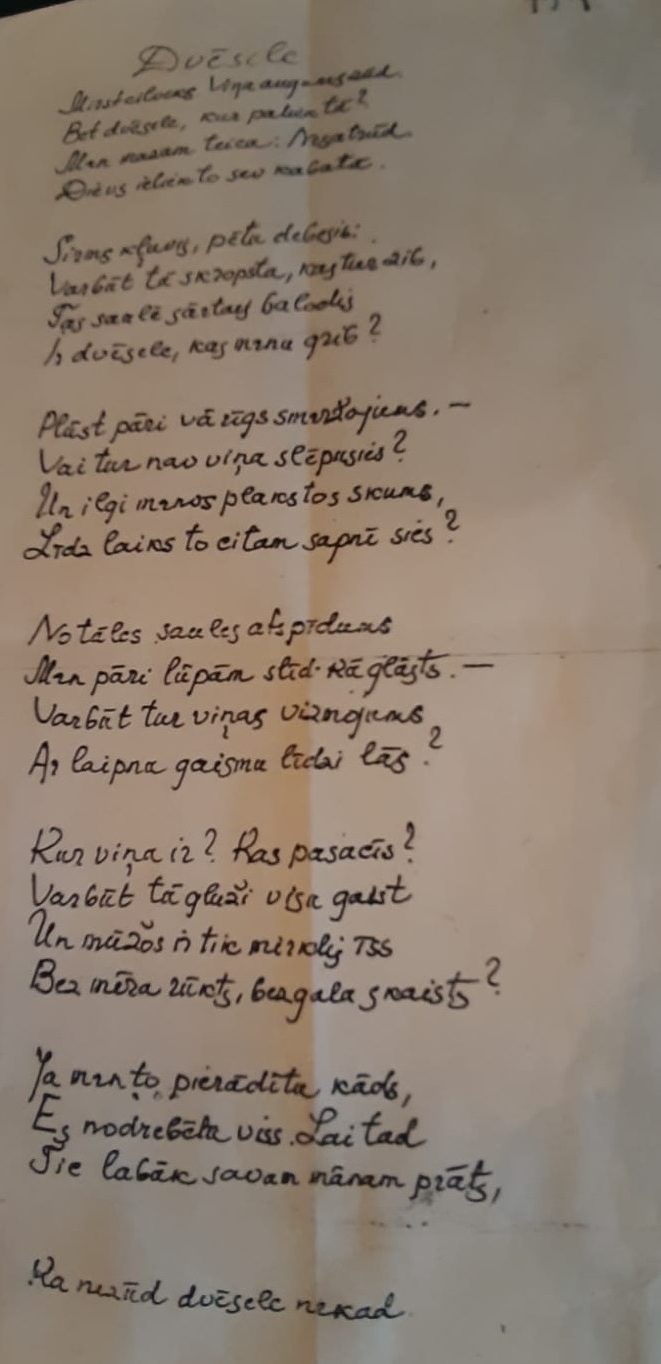 Dvēsele
Mirst cilvēks. Viņa augums zūd.
Bet dvēsele, kur paliek tā?
Man mazam teica: Negatrūd
Dievs ieliek to sev kabatā.
Sirms kļuvis, pēta debesis:
Varbūt tā skropsta, kas tur zib,
Tas saulē sārtais balodis
Ir dvēsele, kas mana grib?
Plūst pāri vārīgs smaržojums. —
Vai tur nav viņa slēpusies?
Un ilgi manos plakstos skums,
Līdz laiks to citam sapnī sies?
No tāles saules atspīdums
Man pāri lūpām slīd kā glāsts. —
Varbūt tur viņas vizmojums
Ar laipna gaisma līdzi lās?
Kur viņa ir? Kas pasacīs?
Varbūt tā gluži viņa gaist
Un mūžos ir tik mirklis īss
Bez mēra rūkts, bezgala skaists?
Ja man to pierādītu kāds,
Es nodrebētu viss. Lai tad
Tic labāk savam mānam prāts,
Ka nezūd dvēsele nekad